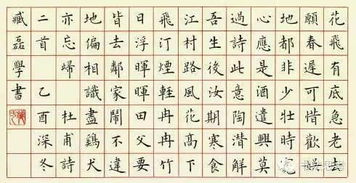 花飛有底急老去
願春遲可惜歡娛
地都非少壯時寬
心應是酒遣興莫
過詩此意陶潛解
吾生後汝期寒食
江村路風花高下
飛汀煙輕冉冉竹
日浮暉暉田父要
皆去鄰家鬧不違
地偏相識盡雞犬
亦忘歸 杜甫詩
二首 乙酉深冬
臧磊學書